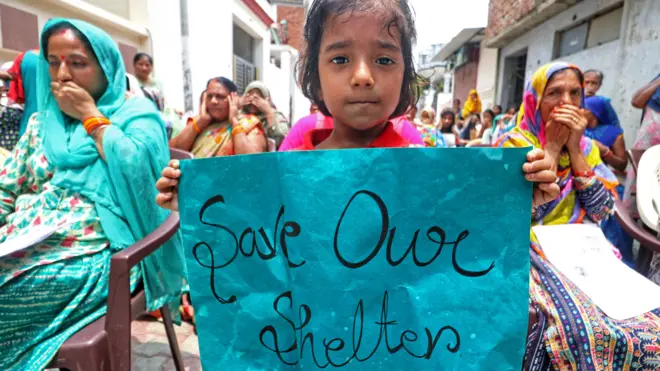 Save Our
Shelter